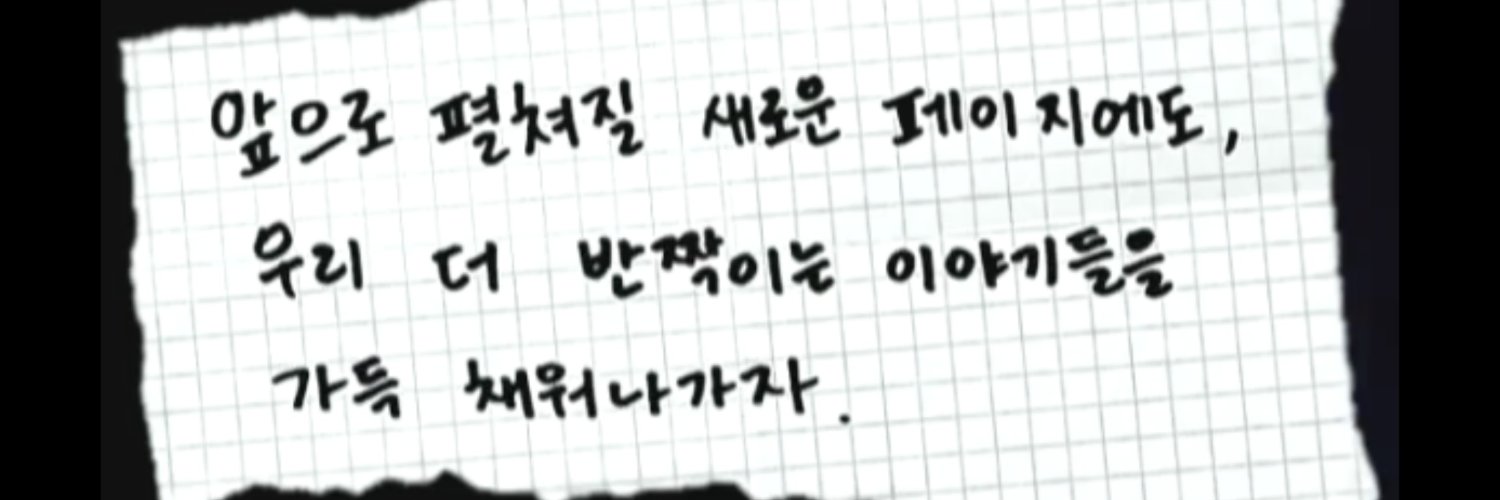 앞으로 펼쳐질 새로운 페이지에도,
우리 더 반짝이는 이야기들을
가득 채워나가자.